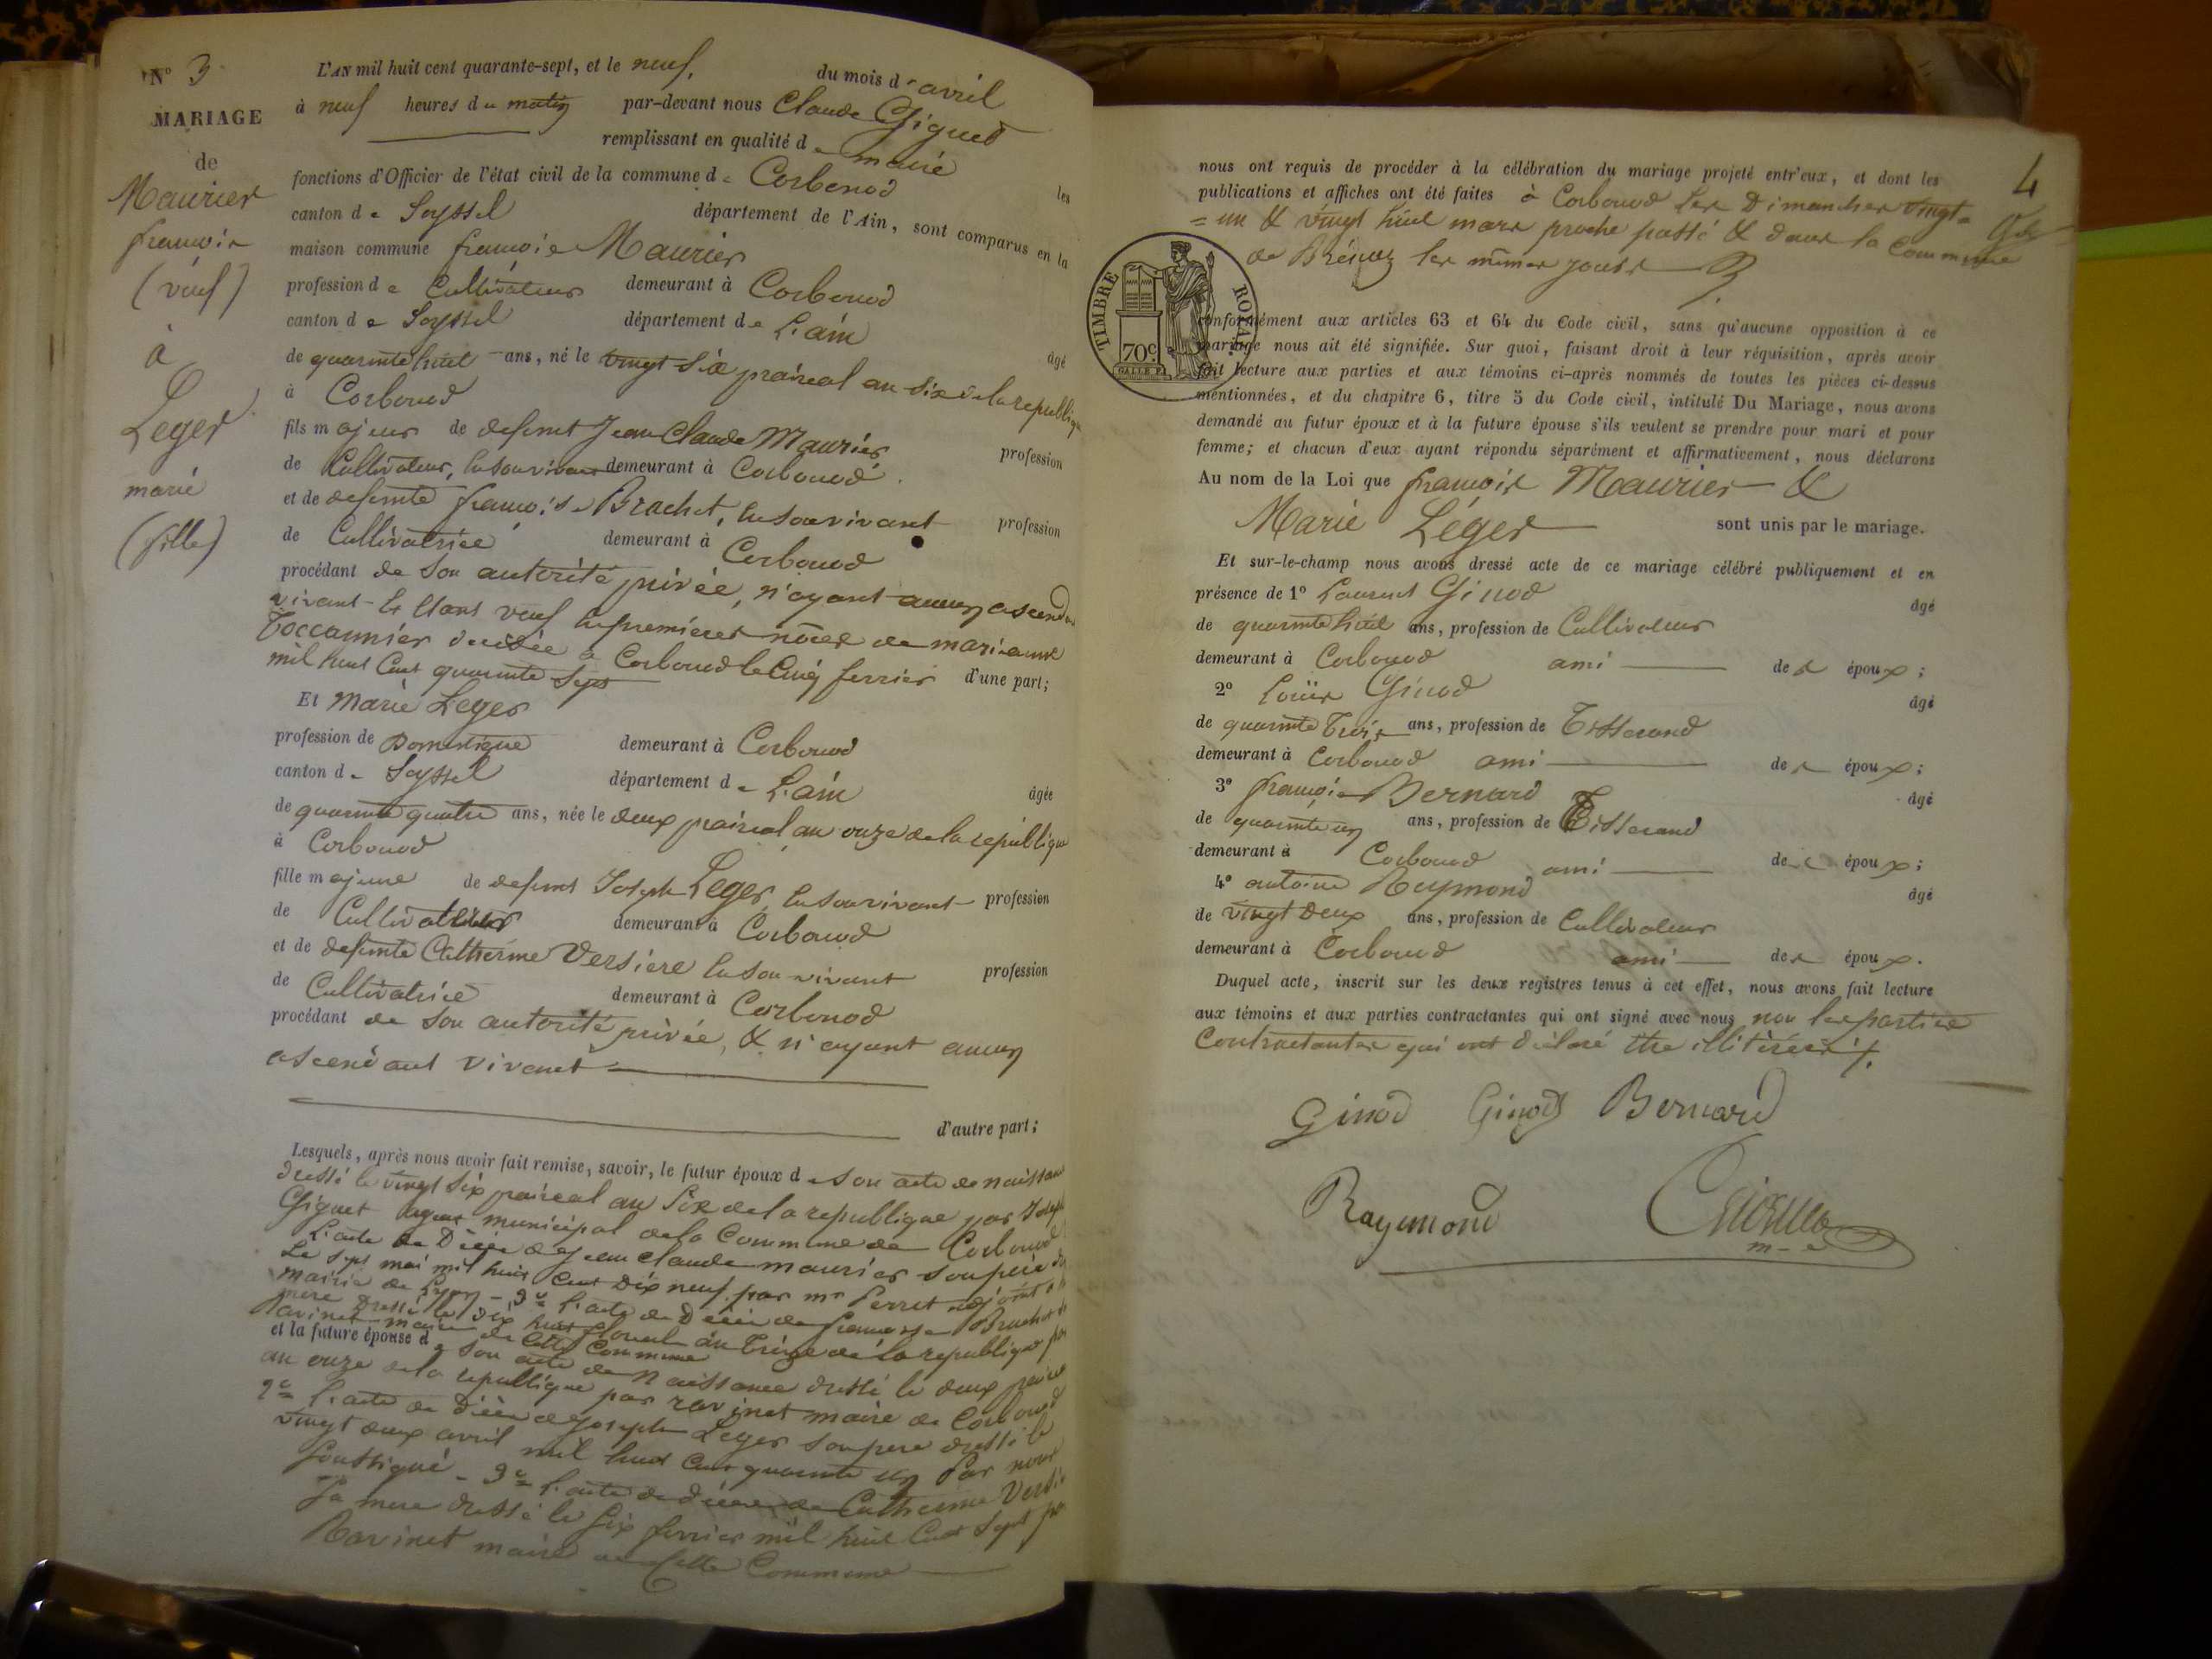 N° 3
MARIAGE
de
Maurier
françois
(veuf)
à
Leger
marie
(fille)
L'AN mil huit cent quarante-sept, et le neuf, du mois d'avril
à neuf heures du matin par-devant nous Claude Giguet
remplissant en qualité de maire les
fonctions d'Officier de l'état civil de la commune de Corbonod
canton de Seyssel département de l'Ain, sont comparus en la
maison commune françois Maurier
profession de Cultivateur demeurant à Corbonod
canton de Seyssel département de L'ain âgé
de quarante huit ans, né le vingt six praireal an six de la republique
à Corbonod
fils majeur de defunt Jean Claude Maurier profession
de Cultivateur, en son vivant demeurant à Corbonod
et de defunte françoise Brachet, en son vivant profession
de Cultivatrice demeurant à Corbonod
procédant de son autorité privée, n'ayant aucun ascendant
vivant & étant veuf en premieres noces de marianne
Toccannier decedée à Corbonod le cinq fevrier d'une part;
mil huit cent quarante sept
Et Marie Leger
profession de Domestique demeurant à Corbonod
canton de Seyssel département de L'ain âgée
de quarante quatre ans, née le deux praireal an onze de la republique
à Corbonod
fille majeure de defunt Joseph Leger, en son vivant profession
de Cultivateur demeurant à Corbonod
et de defunte Catherine Versiere en son vivant profession
de Cultivatrice demeurant à Corbonod
procédant de son autorité privée, & n'ayant aucun
ascendant vivant
d'autre part;
Lesquels, après nous avoir fait remise, savoir, le futur époux de son acte de naissance
dressé le vingt six praireal an six de la republique par Joseph
Giguet agent municipal de la Commune de Corbonod
L'acte de Décès de Jean Claude maurier son père
le sept mai mil huit cent dix neuf par mr Perret adjoint à la
mairie de Lyon - 3e L'acte de Décès de françoise Brachet
mère dressé le dix huit floreal an treize de la republique par
Ravinet maire de Cette Commune
et la future épouse de son acte de Naissance dressé le deux praireal
an onze de la republique par ravinet maire de Corbonod
2e L'acte de Décès de Joseph Leger son pere dressé le
vingt deux avril mil huit cent quarante un Par nous
soussigné - 3e L'acte de décès de Catherine Versiere
sa mere dressé le six fevrier mil huit Cent sept par
Ravinet maire de Cette Commune
4
nous ont requis de procéder à la célébration du mariage projeté entr'eux, et dont les
publications et affiches ont été faites à Corbonod les Dimanches vingt=
=un & vingt huit mars proche passé & dans la Commune
de les mêmes jours
TIMBRE ROYAL
70c.
conformément aux articles 63 et 64 du Code civil, sans qu'aucune opposition à ce
mariage nous ait été signifiée. Sur quoi, faisant droit à leur réquisition, après avoir
fait lecture aux parties et aux témoins ci-après nommés de toutes les pièces ci-dessus
mentionnées, et du chapitre 6, titre 5 du Code civil, intitulé Du Mariage, nous avons
demandé au futur époux et à la future épouse s'ils veulent se prendre pour mari et pour
femme; et chacun d'eux ayant répondu séparément et affirmativement, nous déclarons
Au nom de la Loi que françois Maurier &
Marie Léger sont unis par le mariage.
Et sur-le-champ nous avons dressé acte de ce mariage célébré publiquement et en
présence de 1° Laurent Ginod âgé
de quarante huit ans, profession de Cultivateur
demeurant à Corbonod ami des époux;
2° Louis Ginod âgé
de quarante trois ans, profession de Tisserand
demeurant à Corbonod ami des époux;
3° françois Bernard âgé
de quarante un ans, profession de Tisserand
demeurant à Corbonod ami des époux;
4° antoine Reymond âgé
de vingt deux ans, profession de Cultivateur
demeurant à Corbonod ami des époux.
Duquel acte, inscrit sur les deux registres tenus à cet effet, nous avons fait lecture
aux témoins et aux parties contractantes qui ont signé avec nous non les parties
Contractantes qui ont déclaré être illitérés
Ginod Ginod Bernard
Raymond